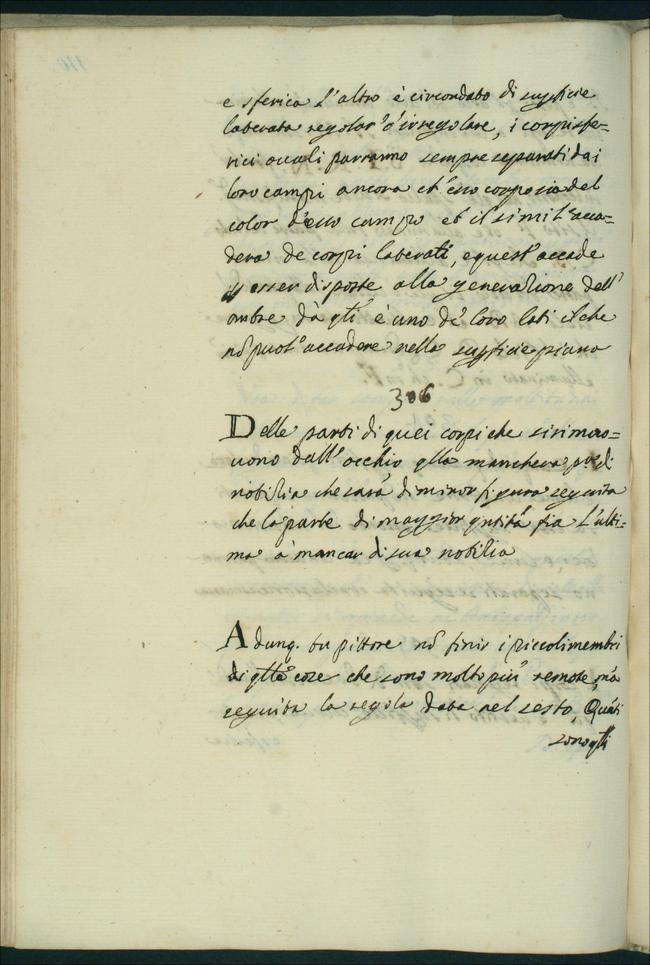 e sferica l'altro è circondato di supficie
laterata regolar' ò irregolare, i corpi sfe=
rici ovali parranno sempre separati da i
loro campi ancora ch' esso corpo sia del
color d'esso campo et il simil' acca=
derà de corpi laterati, e quest' accade
p esser disposte alla generazione dell'
ombre dà qti è uno de loro lati il che
nō puot' accadere nella supficie piana
306
Delle parti di quei corpi che si rimuo=
vono dall' occhio qlla mancherà di
notitia che sarà di minor figura seguita
che la parte di maggior qntità fia l'ulti=
ma à mancar di sua notitia
Adunq. tu pittore nō finir i piccoli membri
di qlle cose che sono molto più remote, mà
seguita la regola data nel sesto, Quāti
sono qlli